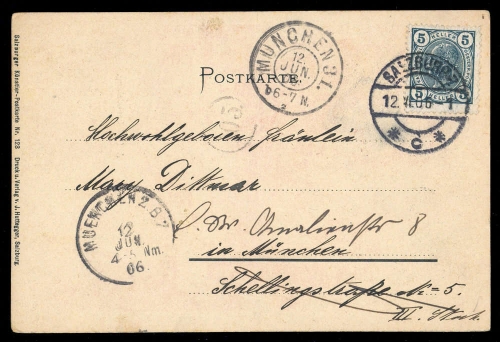 Salzburger Künstler-Postkarte Nr. 128 Druck u. Verlag v. J. Huttegger, Salzburg.
POSTKARTE.
MÜNCHEN 31.
12
JUN.
6-7 N.
5 HELLER 5
5 5
SALZBURG
12. VI. 06
* C *
Hochwohlgeboren fräulein
Mary Dittmar
Amalienstr 8
in München
Schellingstraße No 5.
III. Stock
MUENCHEN 2.B.
12
JUN.
Nm.
06